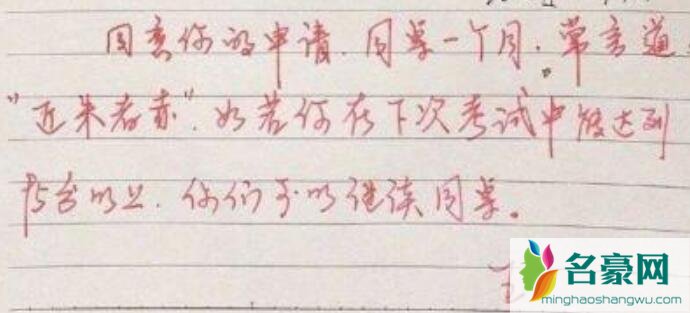 同意你的申请.同桌一个月.常言道
"近朱者赤".如若你在下次考试中能达到
75分以上.你们可以继续同桌。
名豪网
minghaoshangwu.com